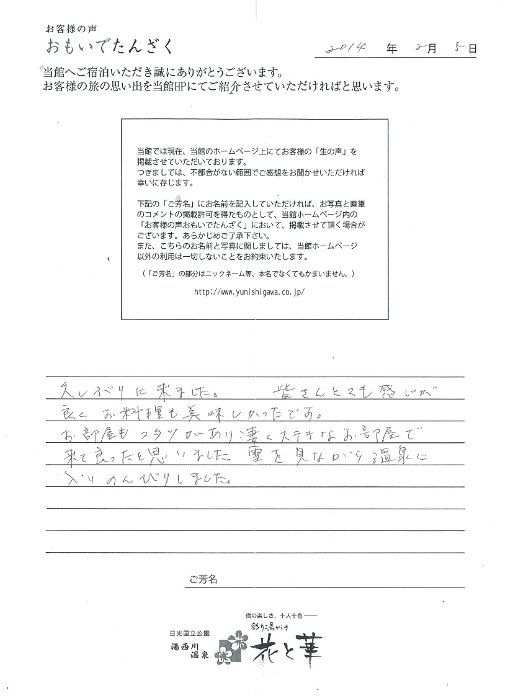 お客様の声
おもいでたんざく
2014 年 2月 5日
当館へご宿泊いただき誠にありがとうございます。
お客様の旅の思い出を当館HPにてご紹介させていただければと思います。
当館では現在、当館のホームページ上にてお客様の「生の声」を
掲載させていただいております。
つきましては、不都合がない範囲でご感想をお聞かせいただければ
幸いに存じます。
下記の「ご芳名」にお名前を記入していただければ、お写真と直筆
のコメントの掲載許可を得たものとして、当館ホームページ内の
「お客様の声おもいでたんざく」において、掲載させて頂く場合が
ございます。あらかじめご了承下さい。
また、こちらのお名前と写真に関しましては、当館ホームページ
以外の利用は一切しないことをお約束いたします。
（「ご芳名」の部分はニックネーム等、本名でなくてもかまいません。）
http://www.yunishigawa.co.jp/
久しぶりに来ました。 皆さんとても感じが
良く お料理も美味しかったです。
お部屋も コタツがあり凄くステキなお部屋で
来て良ったと思いました。雪を見ながら温泉に
入り のんびりしました。
ご芳名
宿の楽しさ、十人十色――
彩り湯かけ
日光国立公園
湯西川
温泉
花と華